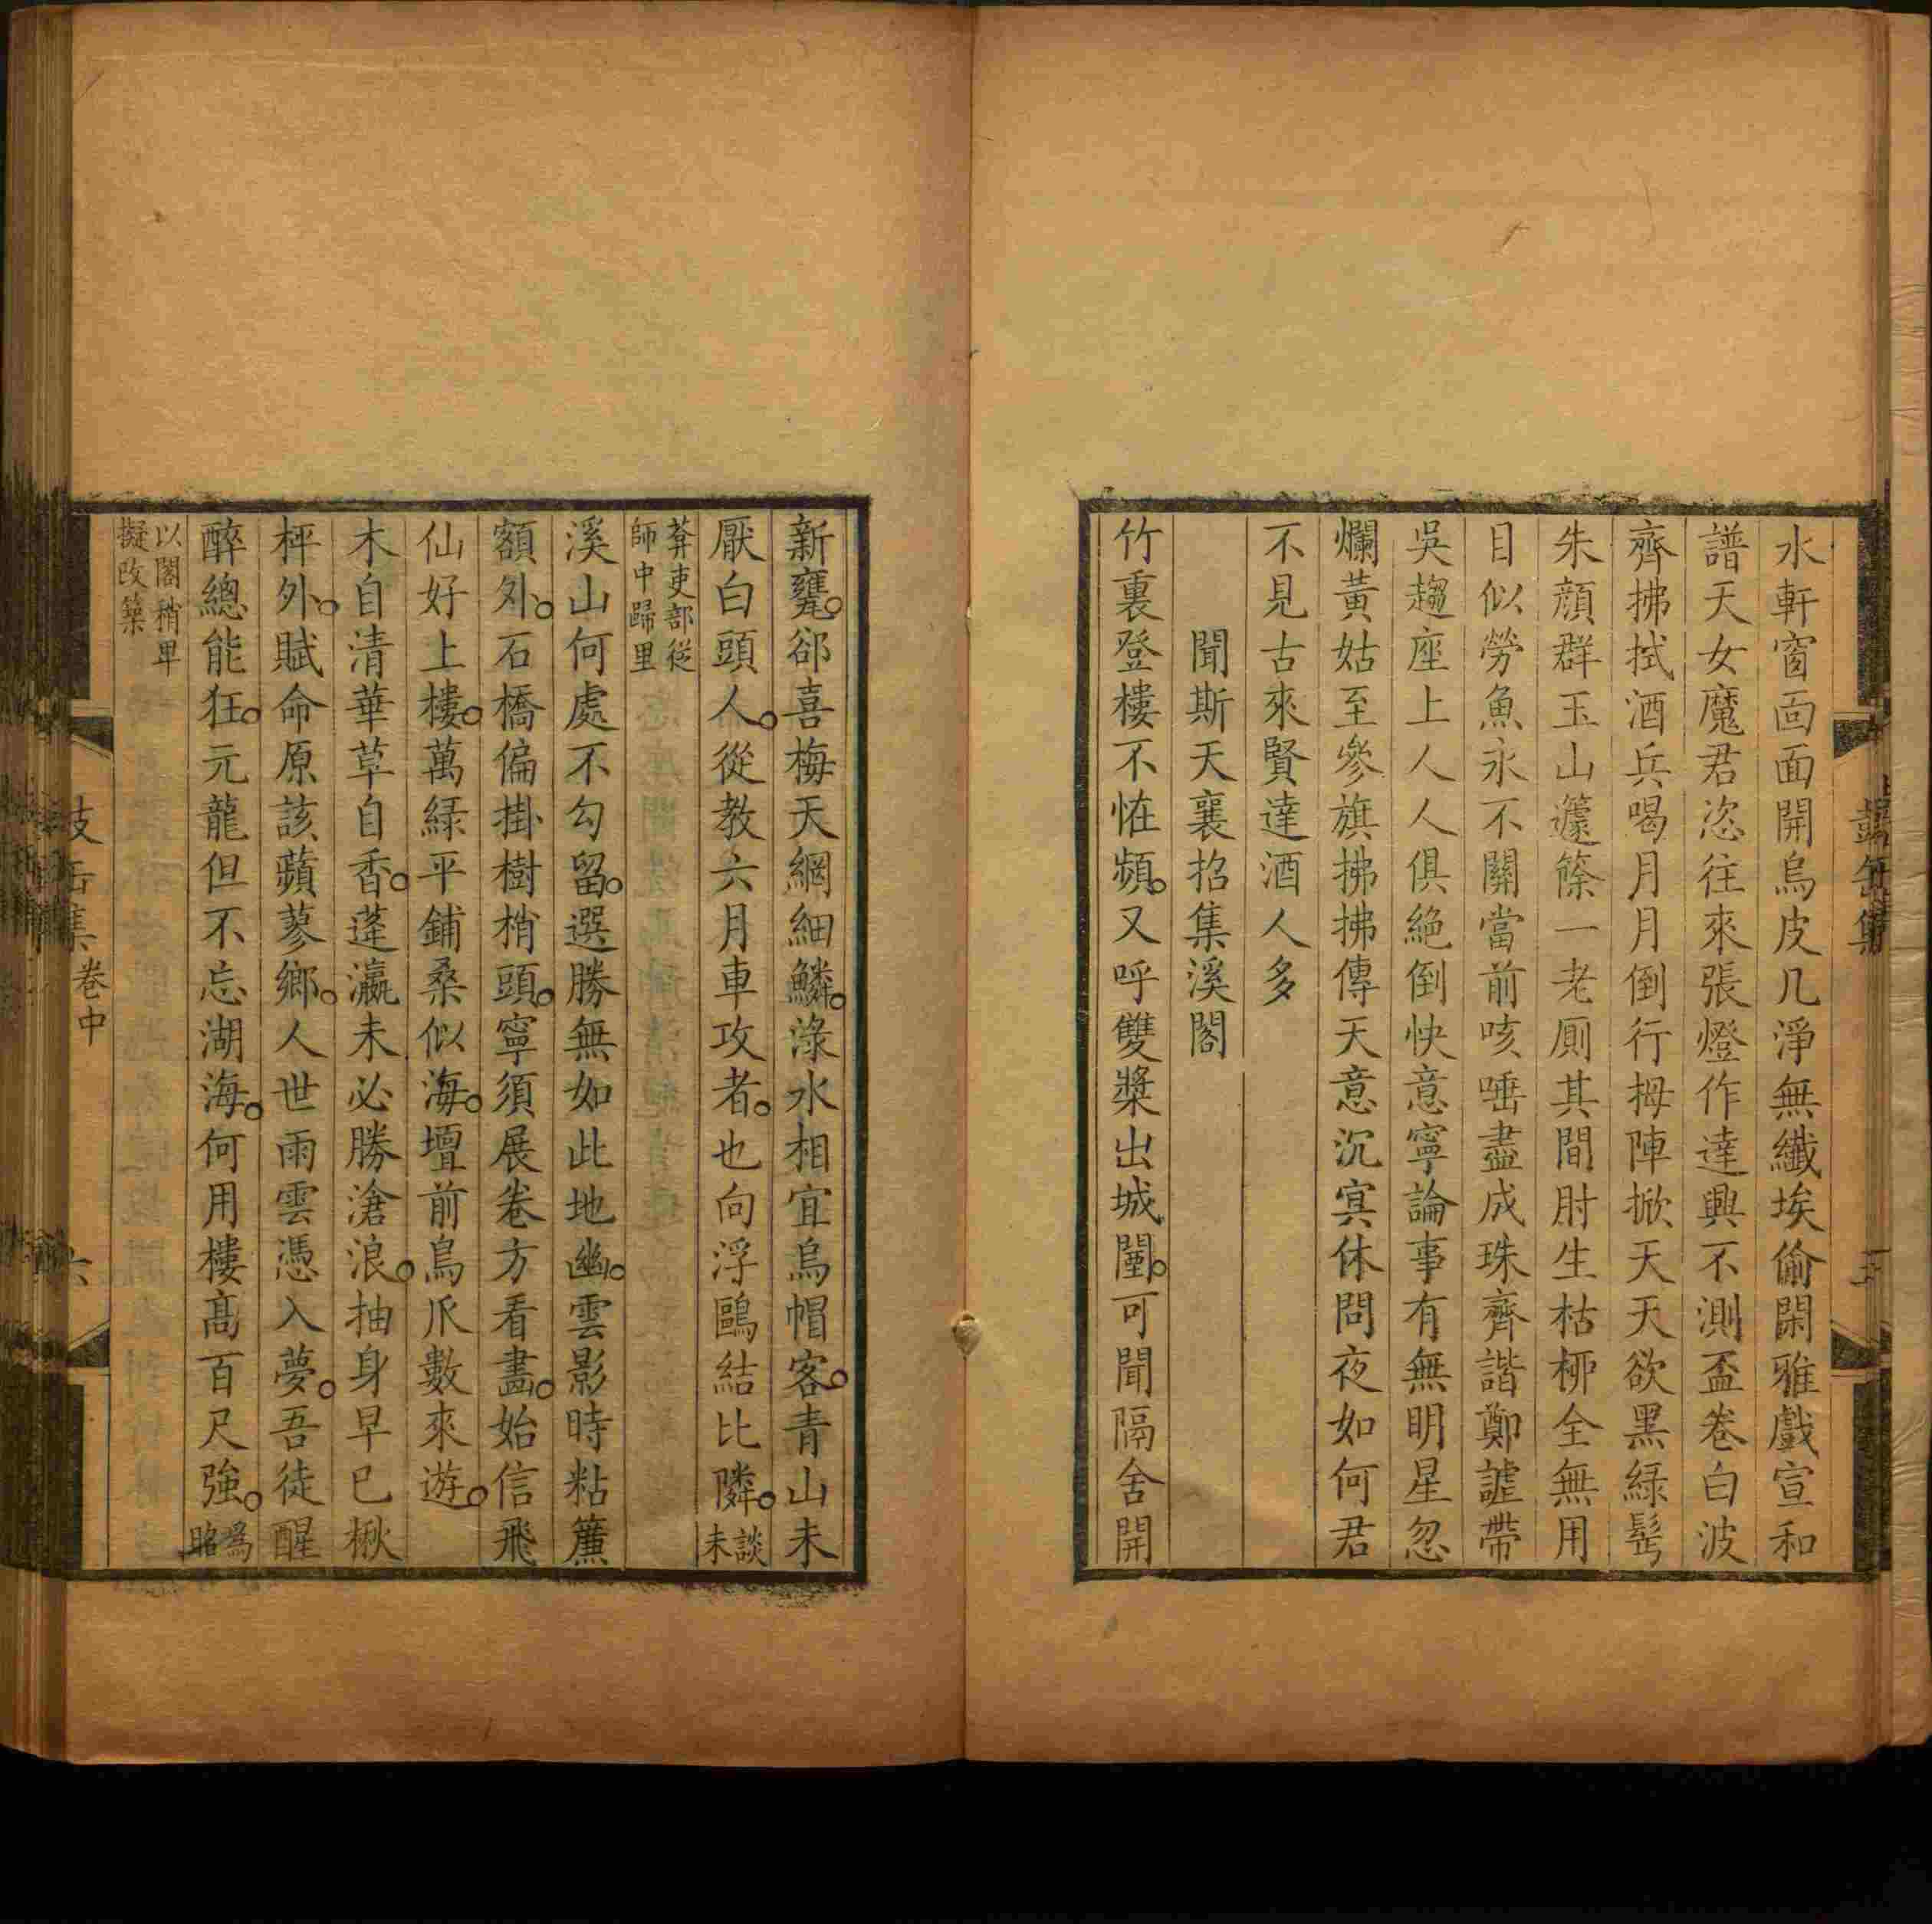 水軒窗面面開烏皮几淨無纖埃偷閑雅戲宣和
譜天女魔君恣往來張燈作達興不測盃卷白波
齊拂拭酒兵喝月月倒行拇陣掀天天欲黑綠髩
朱顔群玉山籧篨一老厠其間肘生枯桺全無用
目似勞魚永不關當前咳唾盡成珠齊諧鄭謔帶
吳趨座上人人俱絕倒快意寧論事有無明星忽
爛黃姑至參旗拂拂傳天意沉冥休問夜如何君
不見古來賢達酒人多
聞斯天襄招集溪閣
竹裏登樓不恠頻又呼雙槳出城闉可聞隔舍開
新甕郤喜梅天網細鱗淥水相宜烏帽客青山未
厭白頭人從教六月車攻者也向浮鷗結比隣談未
莽吏部從
師中歸里
溪山何處不勾留選勝無如此地幽雲影時粘簾
額外石橋偏掛樹梢頭寧須展卷方看畫始信飛
仙好上樓萬綠平鋪桑似海壇前鳥爪數來遊
木自清華草自香蓬瀛未必勝滄浪抽身早已楸
枰外賦命原該蘋蓼鄉人世雨雲憑入夢吾徒醒
醉總能狂元龍但不忘湖海何用樓高百尺強爲昭
以閣稍卑
擬改築
缶集
卷中
六